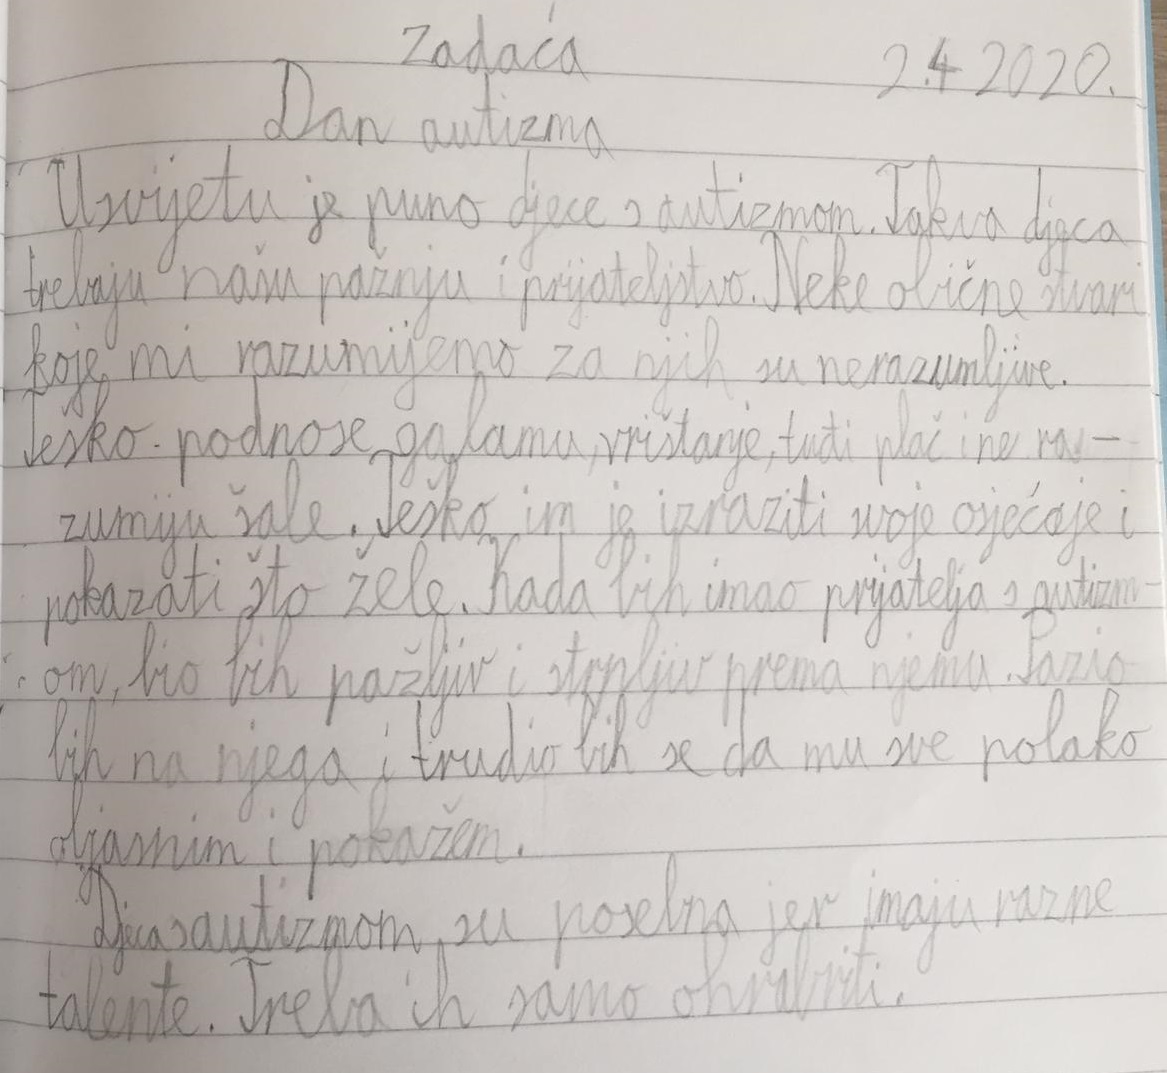 Zadaća
2.4 2020.
Dan autizma
U svijetu je puno djece s autizmom. Takva djeca
trebaju našu pažnju i prijateljstvo. Neke obične stvari
koje mi razumijemo za njih su nerazumljive.
Teško podnose galamu, vrištanje, tuđi plač i ne ra-
zumiju šale. Teško im je izraziti svoje osjećaje i
pokazati što žele. Kada bih imao prijatelja s autizm-
om, bio bih pažljiv i strpljiv prema njemu. Pazio
bih na njega i trudio bih se da mu sve polako
objasnim i pokažem.
Djeca s autizmom su posebna jer imaju razne
talente. Treba ih samo ohrabriti.